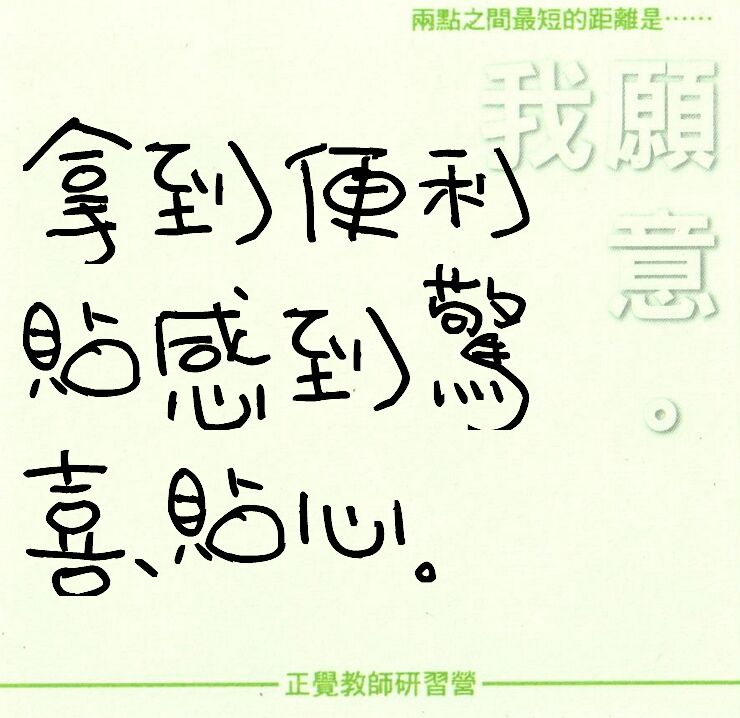 兩點之間最短的距離是……
我願
意。
拿到便利
貼感到驚
喜、貼心。
正覺教師研習營